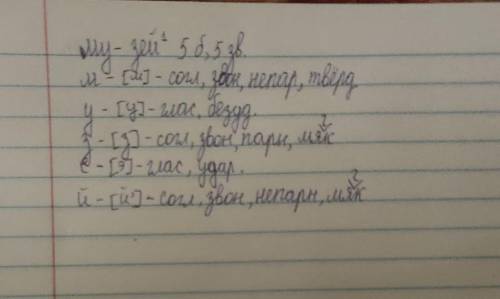 му-зей¹ 5 б, 5 зв.
м-[м]-согл, звон, непар, твёрд
у-[у]-глас, безуд.
з-[з]-согл, звон, парн, мяк
е-[э]-глас, удар.
й-[й']-согл, звон, непарн, мяк